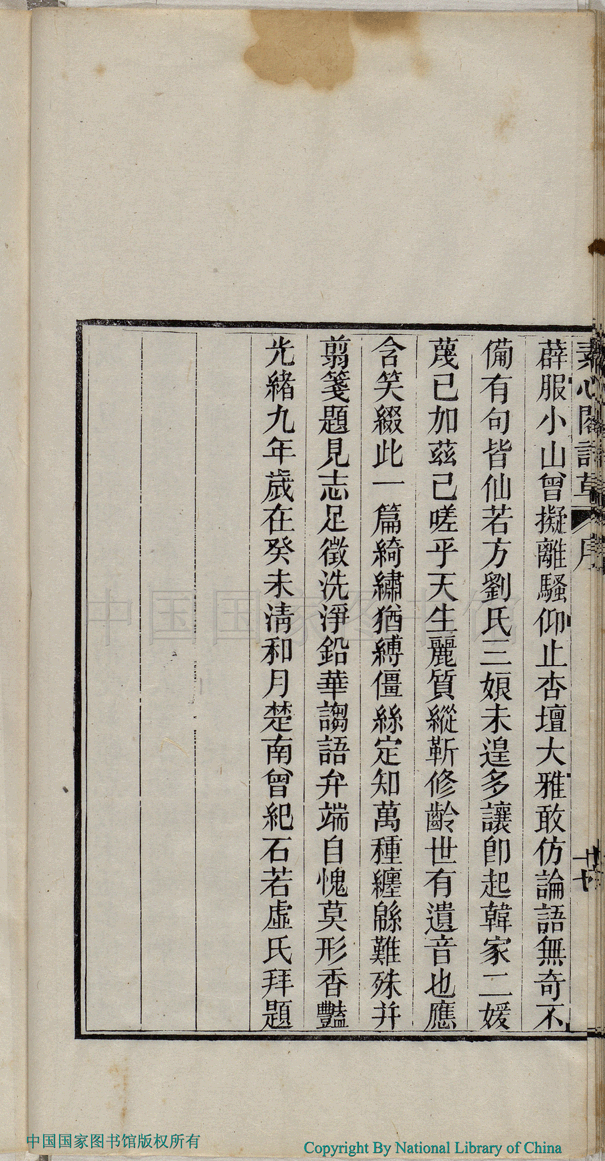 素心閣詩草 序
薜服小山曾擬離騷仰止杏壇大雅敢仿論語無奇不
備有句皆仙若方劉氏三娘未遑多讓卽起韓家二媛
蔑已加茲已嗟乎天生麗質縱靳修齡世有遺音也應
含笑綴此一篇綺繡猶縛僵絲定知萬種纏緜難殊幷
翦箋題見志足徵洗淨鉛華謅語弁端自愧莫形香豔
光緒九年歲在癸未淸和月楚南曾紀石若虛氏拜題
中国国家图书馆
中国国家图书馆版权所有
Copyright By National Library of China